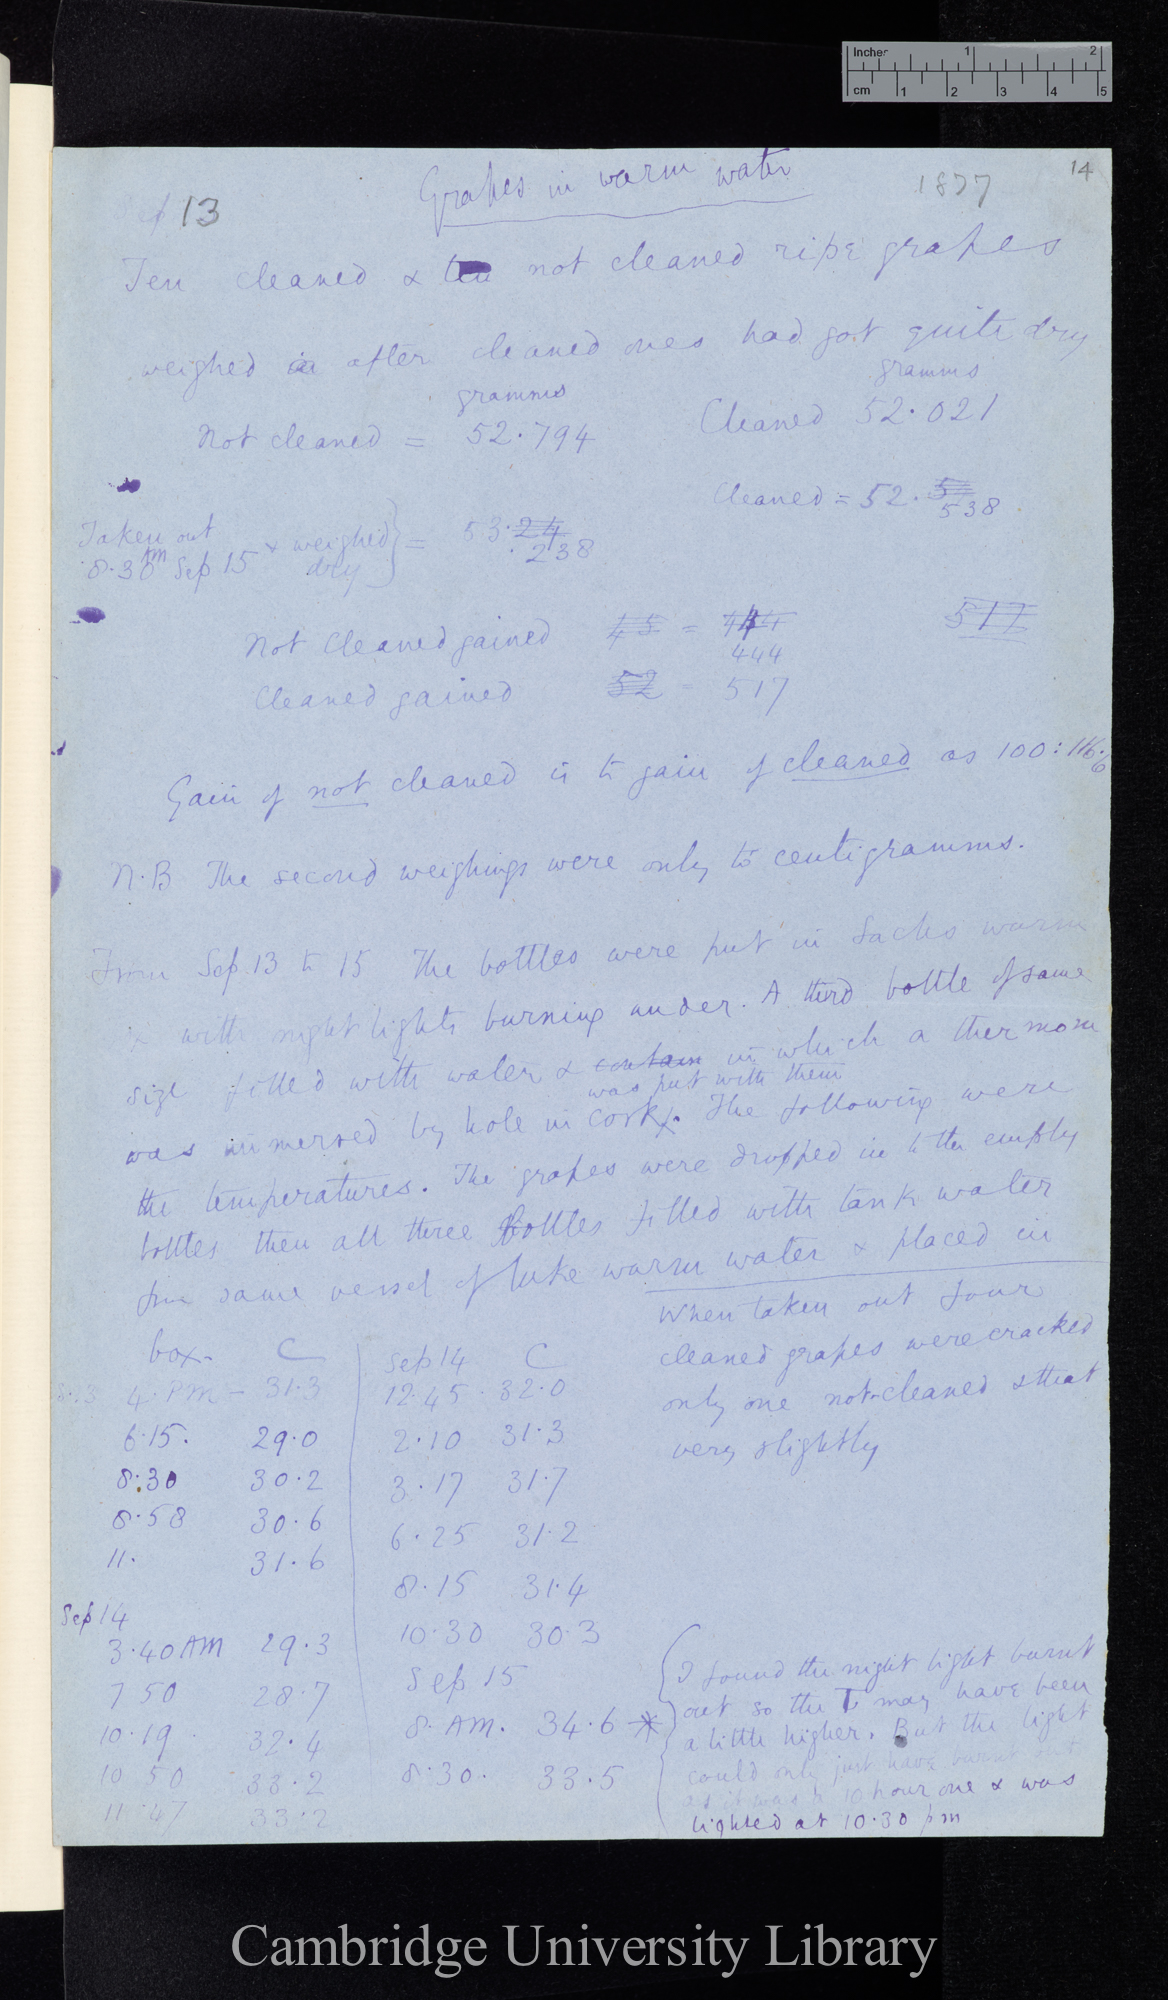 Inches 1 2
cm 1 2 3 4 5
14
Grapes in warm water
1877
Sep 13
Ten cleaned & ten not cleaned ripe grapes
weighed in after cleaned ones had got quite dry
gramms gramms
Not cleaned = 52.794 Cleaned 52.021
Cleaned = 52.5
538
Taken out & weighed } = 53.24
8.30 AM Sep 15 dry 238
Not cleaned gained 45 = 444 517
444
Cleaned gained 52 = 517
Gain of not cleaned is to gain of cleaned as 100:116.6
N.B The second weighings were only to centigramms.
From Sep. 13 to 15 The bottles were put in Sachs warm
with night lights burning under. A third bottle of same
size filled with water & contain in which a thermom
was put with them
was immersed by hole in cork. The following were
the temperatures. The grapes were dropped in to the empty
bottles then all three bottles filled with tank water
from same vessel of luke warm water & placed in
box. C
4. PM - 31.3
6.15. 29.0
8.30 30.2
8.58 30.6
11. 31.6
Sep 14
3.40 AM 29.3
7 50 28.7
10.19. 32.4
10 50 33.2
11.47 33.2
Sep 14 C
12.45. 32.0
2.10 31.3
3.17 31.7
6.25 31.2
8.15 31.4
10.30 30.3
Sep 15
8. AM. 34.6 *
8.30. 33.5
When taken out four
cleaned grapes were cracked
only one not-cleaned & that
very slightly
I found the night light burnt
out so the T may have been
a little higher. But the light
could only just have burnt out
as it was a 10 hour one & was
lighted at 10.30 pm
Cambridge University Library